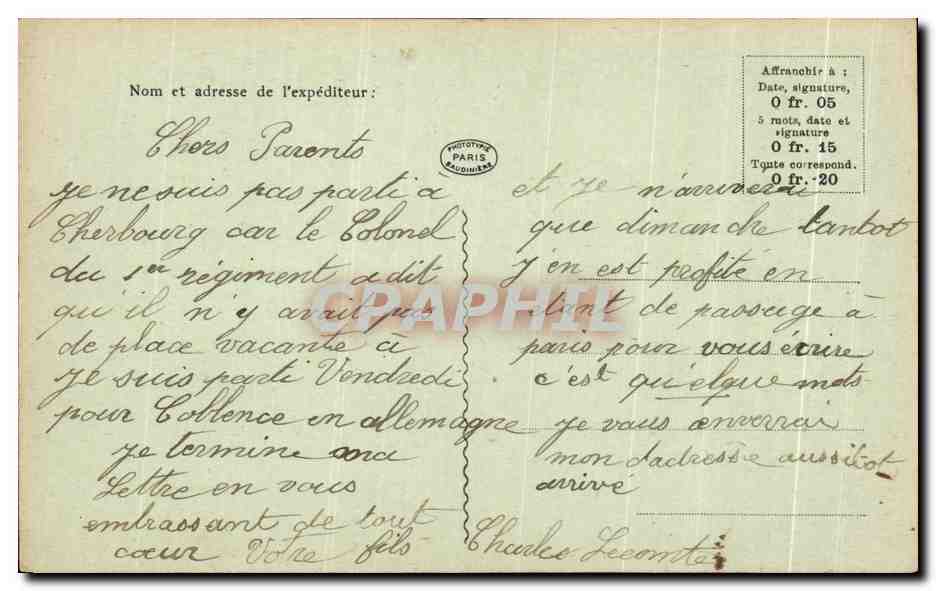 Nom et adresse de l'expéditeur :
Affranchir à :
Date, signature,
0 fr. 05
5 mots, date et
signature
0 fr. 15
Toute correspond.
0 fr. 20
PHOTOTYPIE
PARIS
BAUDINIÈRE
Chers Parents
Je ne suis pas parti a
Cherbourg car le Colonel
du 1er régiment a dit
qu'il n'y avait pas
de place vacante à
Je suis parti Vendredi
pour Coblence en allemagne
et je n'arriverai
que dimanche tantot
J'en est profité en
etant de passage à
paris pour vous écrire
c'est quelque mots
je vous enverrai
mon dadresse aussitot
arrivé
Je termine ma
Lettre en vous
embrassant de tout
cœur Votre fils
Charles Lecomte
CPAPHIL